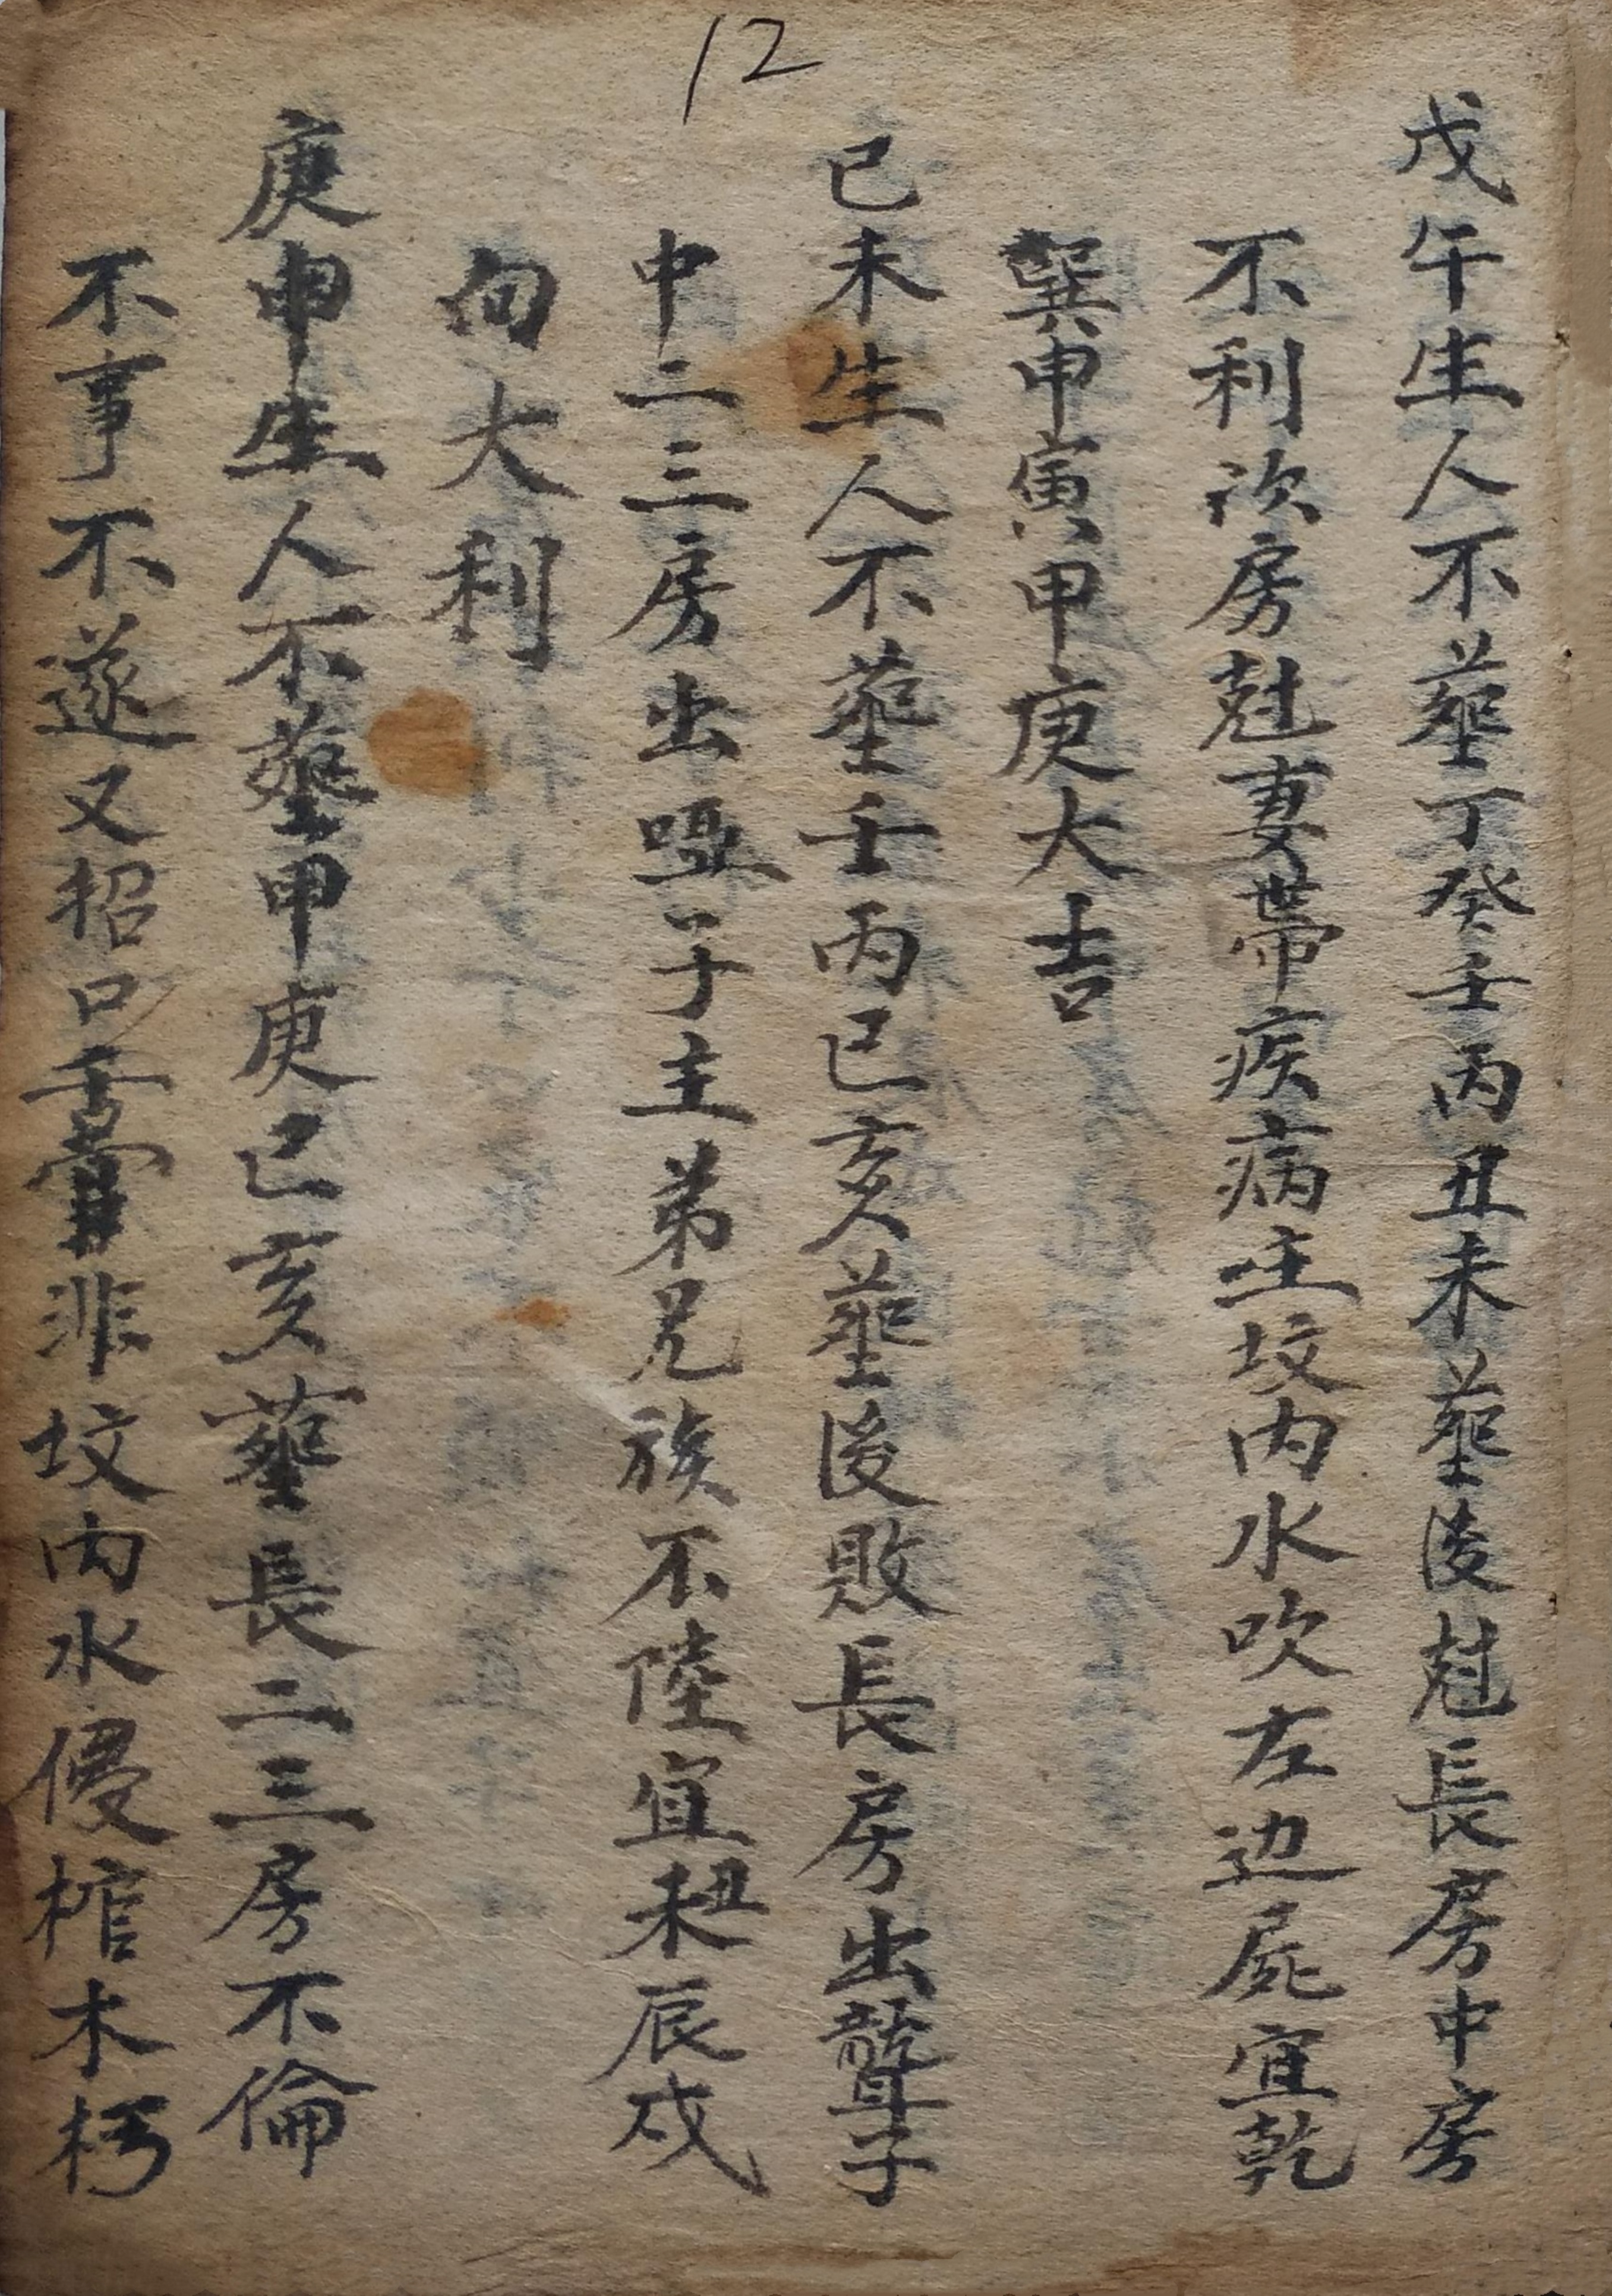 12
戊午生人不塟丁癸壬丙丑未塟後尅長房中房
不利次房尅妻帶疾病主坟内水吹左边屍宜乾
巽申寅甲庚大吉
已未生人不塟壬丙已亥塟後敗長房出聾子
中二三房出啞子主弟兄族不陸宜丑未辰戌
向大利
庚申生人不塟甲庚已亥塟長二三房不倫
不事不遂又招口舌非坟内水侵棺木朽